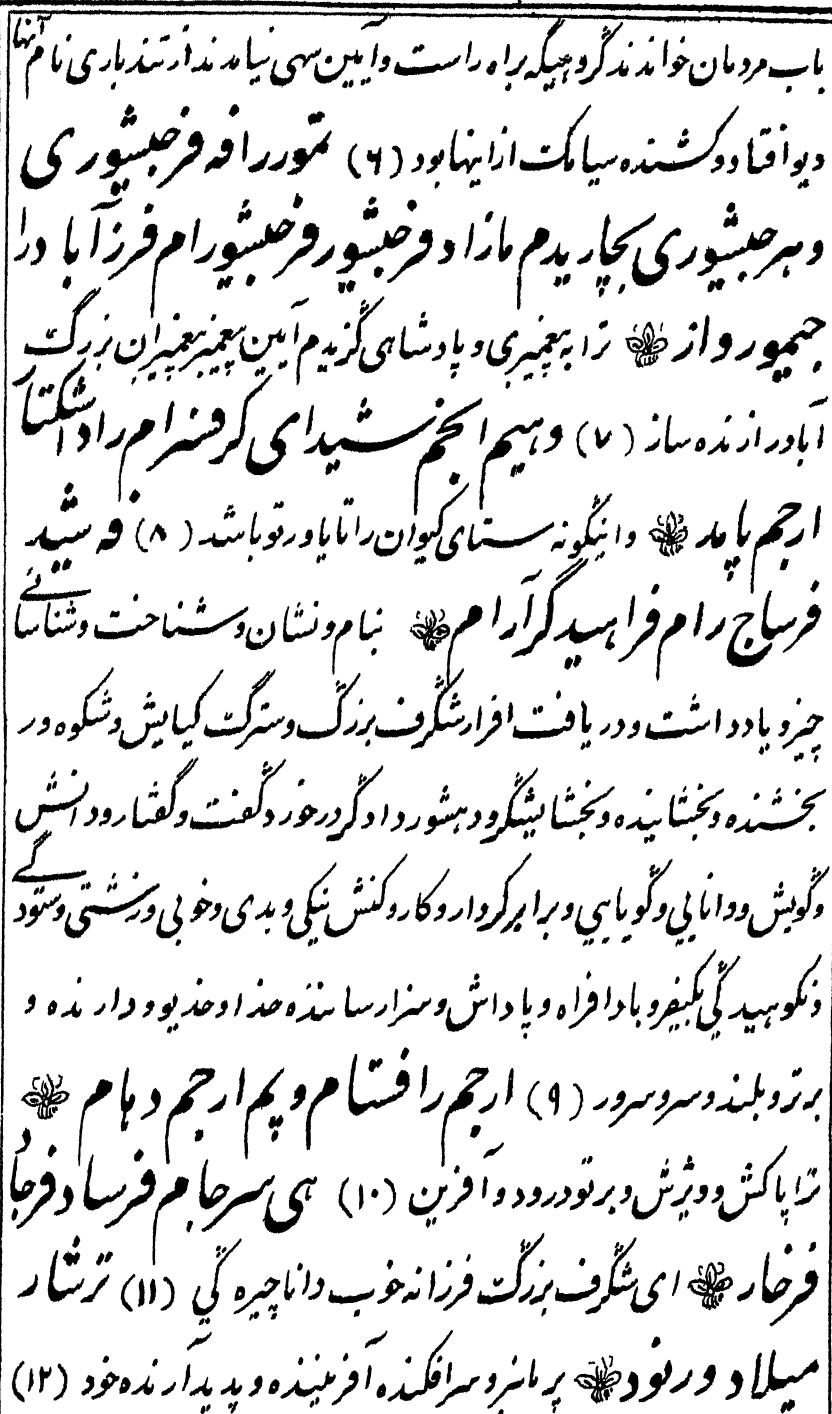 باب مردمان خواندند گروهیکه براه راست و آیین سهی نیامدند از تندباری نام آنها
دیو افتاد و کشنده سیامک از اینها بود (۶) تمور رافه فرجیشوری
و هر جیشوری بچاریدم مازاد فرجیشور فرجیشورام فرزآباد را
جیمور واز ترا به پیغمبری و پادشاهی گزیدم آیین پیغمبر پیغمبران بزرگ
آباد را زنده ساز (۷) وهیم انجم شیدای کرفسرام را دا اشکتا
ارجم پاید و اینگونه ستای کیوان را تا یاور تو باشد (۸) فه شید
فرساج رام فراهیدگر آرام بنام و نشان و شناخت و شناسائے
چیز و یادداشت و دریافت افرار شگرف بزرگ و سترگ کیایش و شکوه ور
بخشنده و بخشاینده و بخشایشگر و دهشور دادگر در خورد گفت و گفتار و دانش
و گویش و دانایی و گویایی و برابر کردار و کار و کنش نیکی و بدی و خوبی و زشتی و ستودگے
و نکوهیدگی بکیفر و بادافراه و پاداش و سزا رساننده خدا و خدیو و دارنده و
برتر و بلند و سر و سرور (۹) ارجم را فستام و پم ارجم دهام
ترا پاکش و ویژش و بر تو درود و آفرین (۱۰) هی سرجام فرساد فرجاد
فرخار ای شگرف بزرگ فرزانه خوب دانا چیره گی (۱۱) ترشار
میلاد ورنود پرمانبر و سرافکنده آفریننده و پدیدآرنده خود (۱۲)